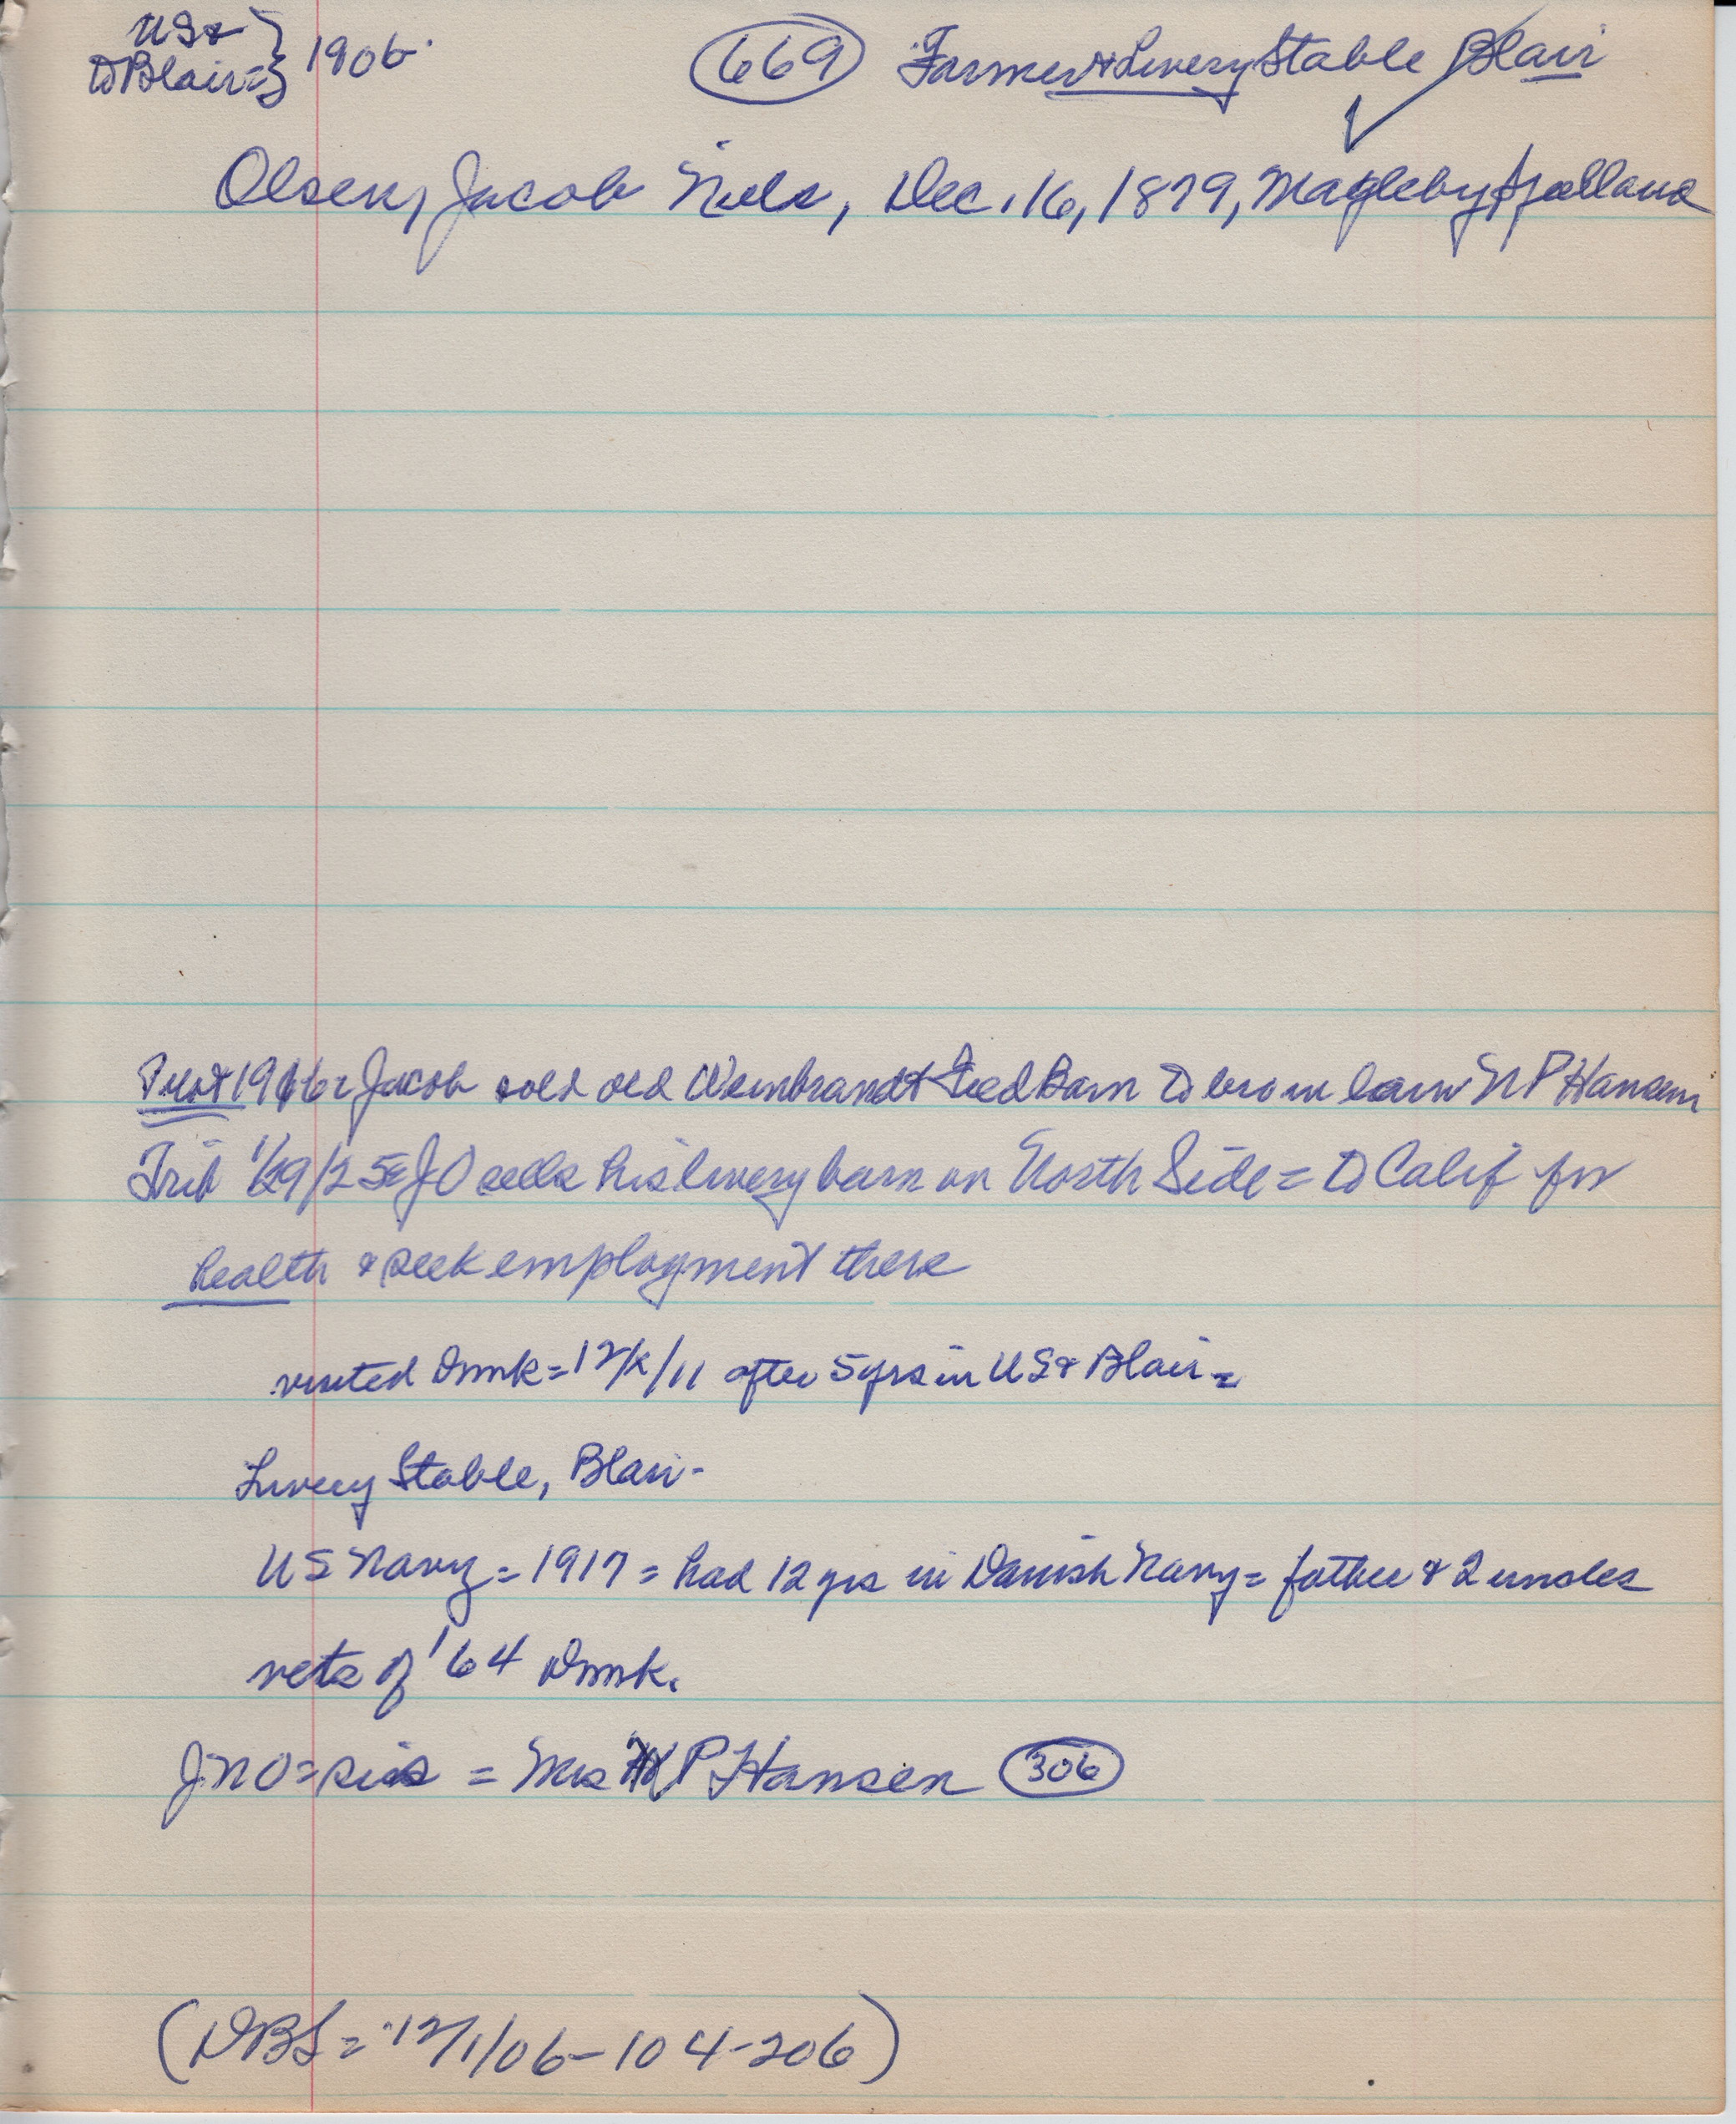 US &
to Blair = } 1906.
669 Farmer & Livery Stable Blair
Olsen, Jacob Niels, Dec. 16, 1879, Magleby, Sjælland
1916 = Jacob sold old Weinbrandt Feed Barn to bro in law N P Hansen
Trib 1/29/25 = J O sells his livery barn on North Side = to Calif for
health & seek employment there
visited Dmk = 12/ /11 after 5 yrs in US & Blair =
Livery Stable, Blair -
US Navy = 1917 = had 12 yrs in Danish Navy = father & 2 uncles
vets of '64 Dmk.
J N O = sis = Mrs P Hansen 306
(DBS = 12/1/06 - 104-206)